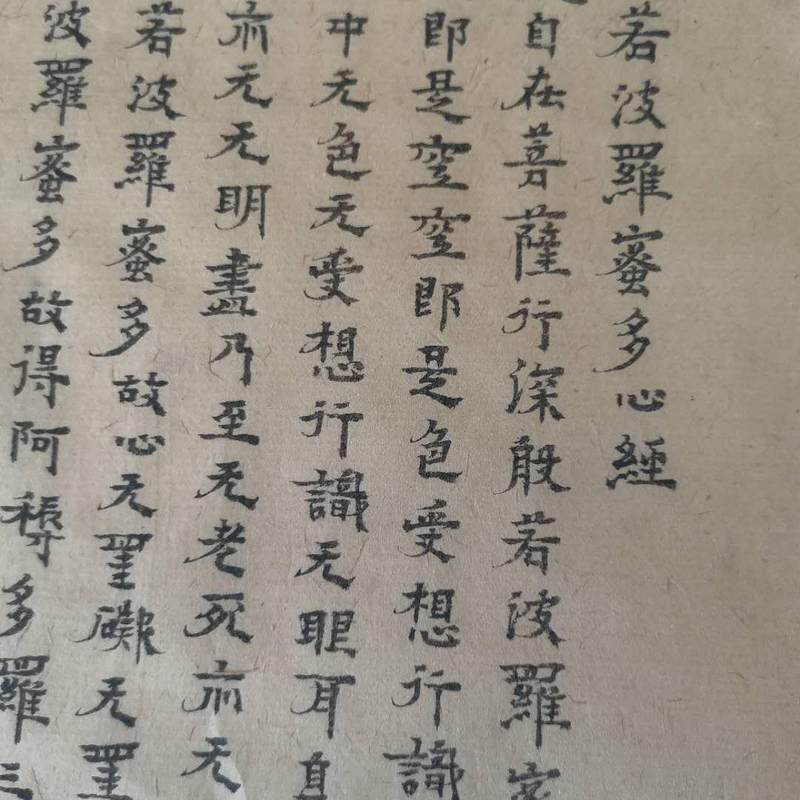 若波羅蜜多心經
自在菩薩行深般若波羅蜜
即是空空即是色受想行識
中无色无受想行識无眼耳鼻
亦无无明盡乃至无老死亦无
若波羅蜜多故心无罣礙无罣
波羅蜜多故得阿耨多羅三